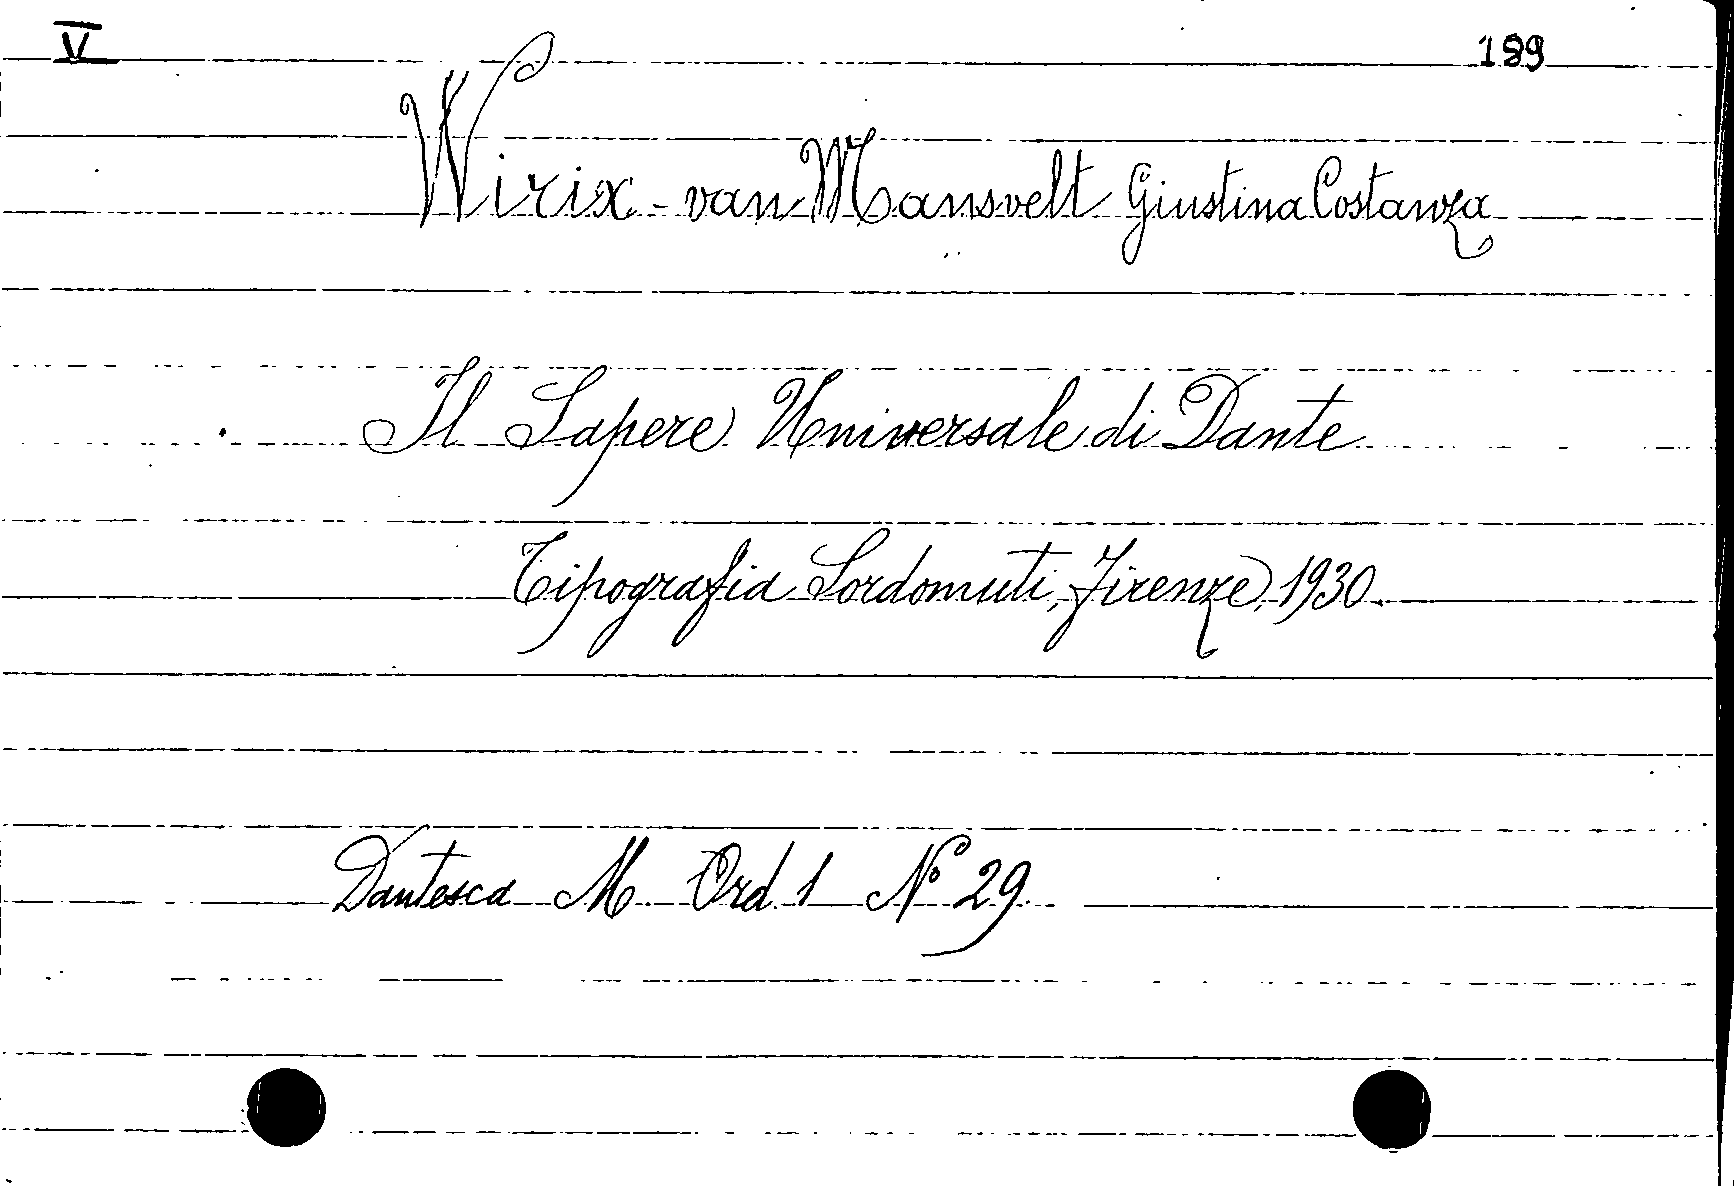 V 189
Wirix - van Mansvelt Giustina Costanza
Il Sapere Universale di Dante
Tipografia Sordomuti, Firenze, 1930.
Dantesca M. Ord. 1 Nº 29